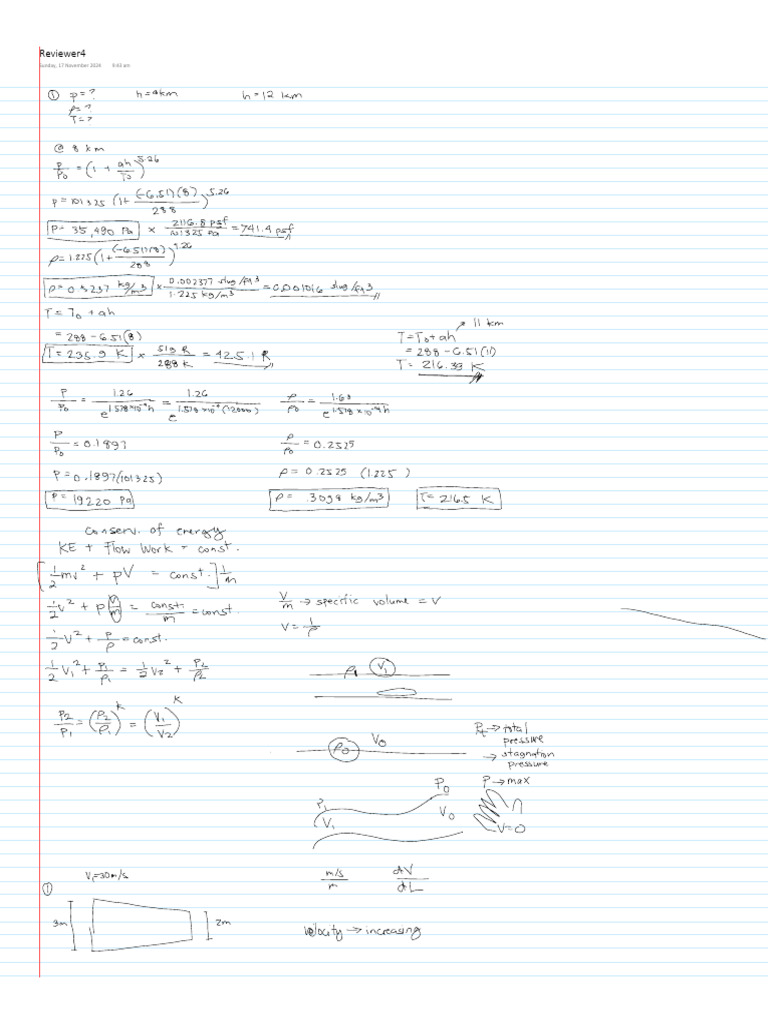 Reviewer4
Sunday, 17 November 2024 9:43 am
① p = ? h = 8km h = 12 km
ρ = ?
T = ?
@ 8 km
P/P₀ = (1 + ah/T₀)^5.26
P = 101325 (1 + (-6.51)(8)/288)^5.26
P = 35,490 Pa × 2116.8 psf/101325 Pa = 741.4 psf
ρ = 1.225 (1 + (-6.51)(8)/288)^4.26
ρ = 0.5237 kg/m³ × 0.002377 slug/ft³/1.225 kg/m³ = 0.001016 slug/ft³
T = T₀ + ah
= 288 - 6.51(8)
T = 235.9 K × 519 R/288 K = 425.1 R
11 km
T = T₀ + ah
= 288 - 6.51(11)
T = 216.39 K
P/P₀ = 1.26/e^(1.578×10⁻⁴h) = 1.26/e^(1.578×10⁻⁴(12000)) ρ/ρ₀ = 1.68/e^(1.578×10⁻⁴h)
P/P₀ = 0.1897 ρ/ρ₀ = 0.2525
P = 0.1897(101325) ρ = 0.2525 (1.225)
P = 19220 Pa ρ = .3098 kg/m³ T = 216.5 K
Conserv. of energy
KE + Flow Work = const.
[½mv² + pV = const.] 1/m
½v² + p(V/m) = const./m = const. V/m → specific volume = V
½V² + P/ρ = const. V = 1/ρ
½V₁² + P₁/ρ₁ = ½V₂² + P₂/ρ₂
P₁ V₁
P₂/P₁ = (ρ₂/ρ₁)^K = (V₁/V₂)^K
P₀ V₀
Pt → total pressure
→ stagnation pressure
P → max
V = 0
P₀
P₁ V₀
V₁
V₁=30m/s m/s/m dV/dL
①
3m 2m velocity → increasing